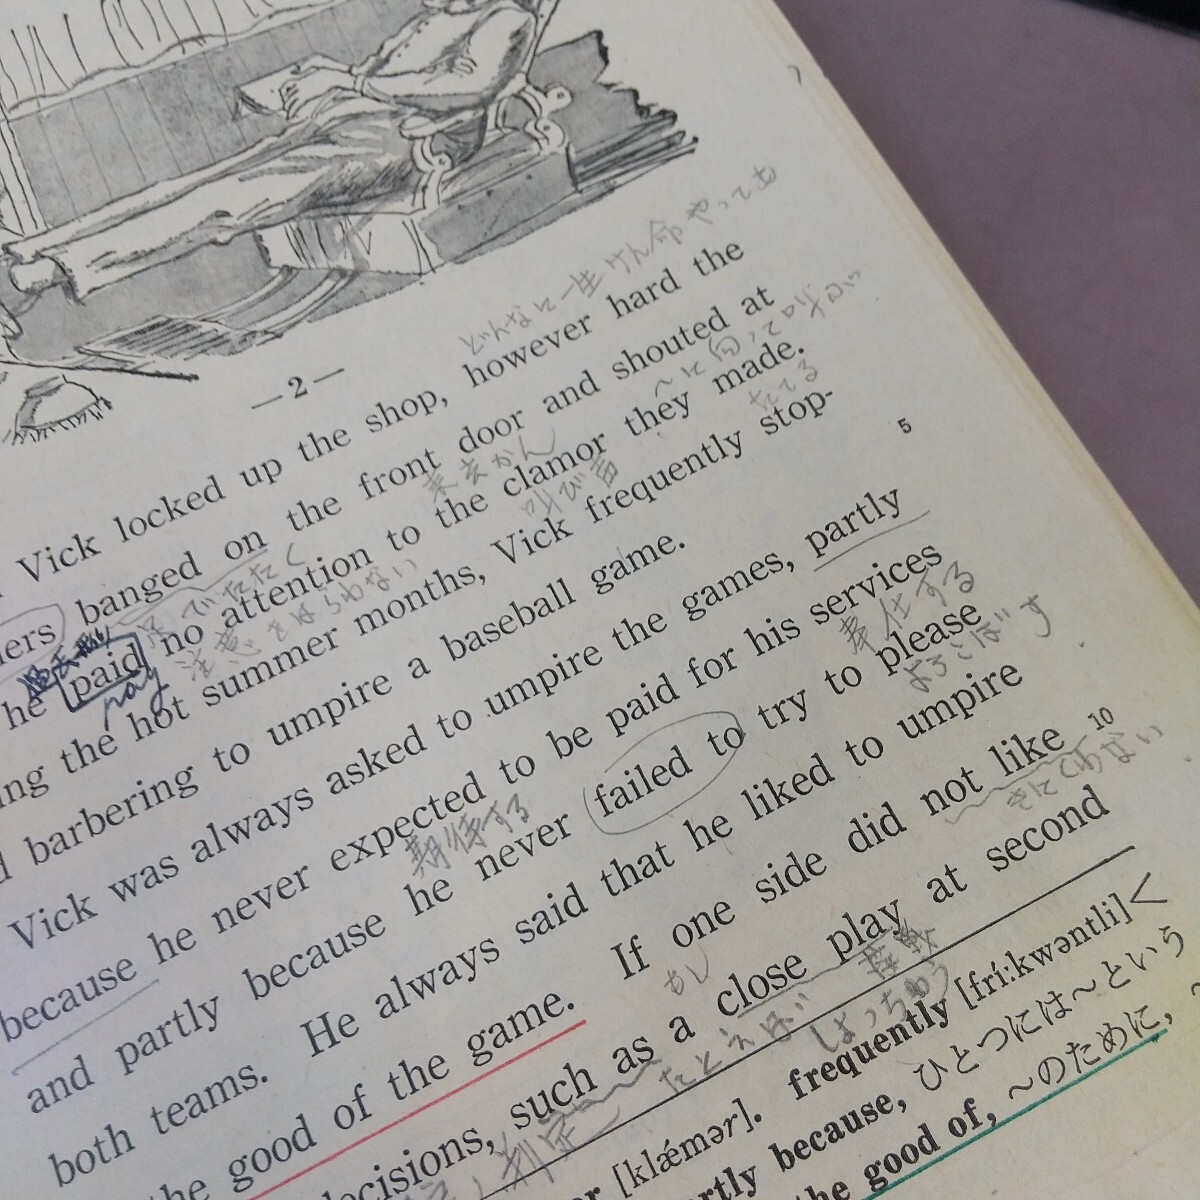 —2—
どんなに一生けん命やっても
Vick locked up the shop, however hard the
banged on the front door and shouted at
～に向って叫ぶ
he paid no attention to the clamor they made.
pay
注意をはらわない
叫び声
たてる
ing the hot summer months, Vick frequently stop-
5
barbering to umpire a baseball game.
Vick was always asked to umpire the games, partly
because he never expected to be paid for his services
期待する
奉仕する
and partly because he never failed to try to please
よろこばす
both teams. He always said that he liked to umpire
the good of the game. If one side did not like
10
もし
きにくわない
decisions, such as a close play at second
判定
たとえば
接戦
[klǽmər]. frequently [frí:kwəntli]<
partly because, ひとつには～という
the good of, ～のために,